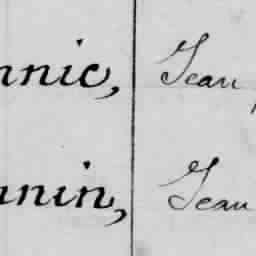 nnic, Jean
nnin, Jean